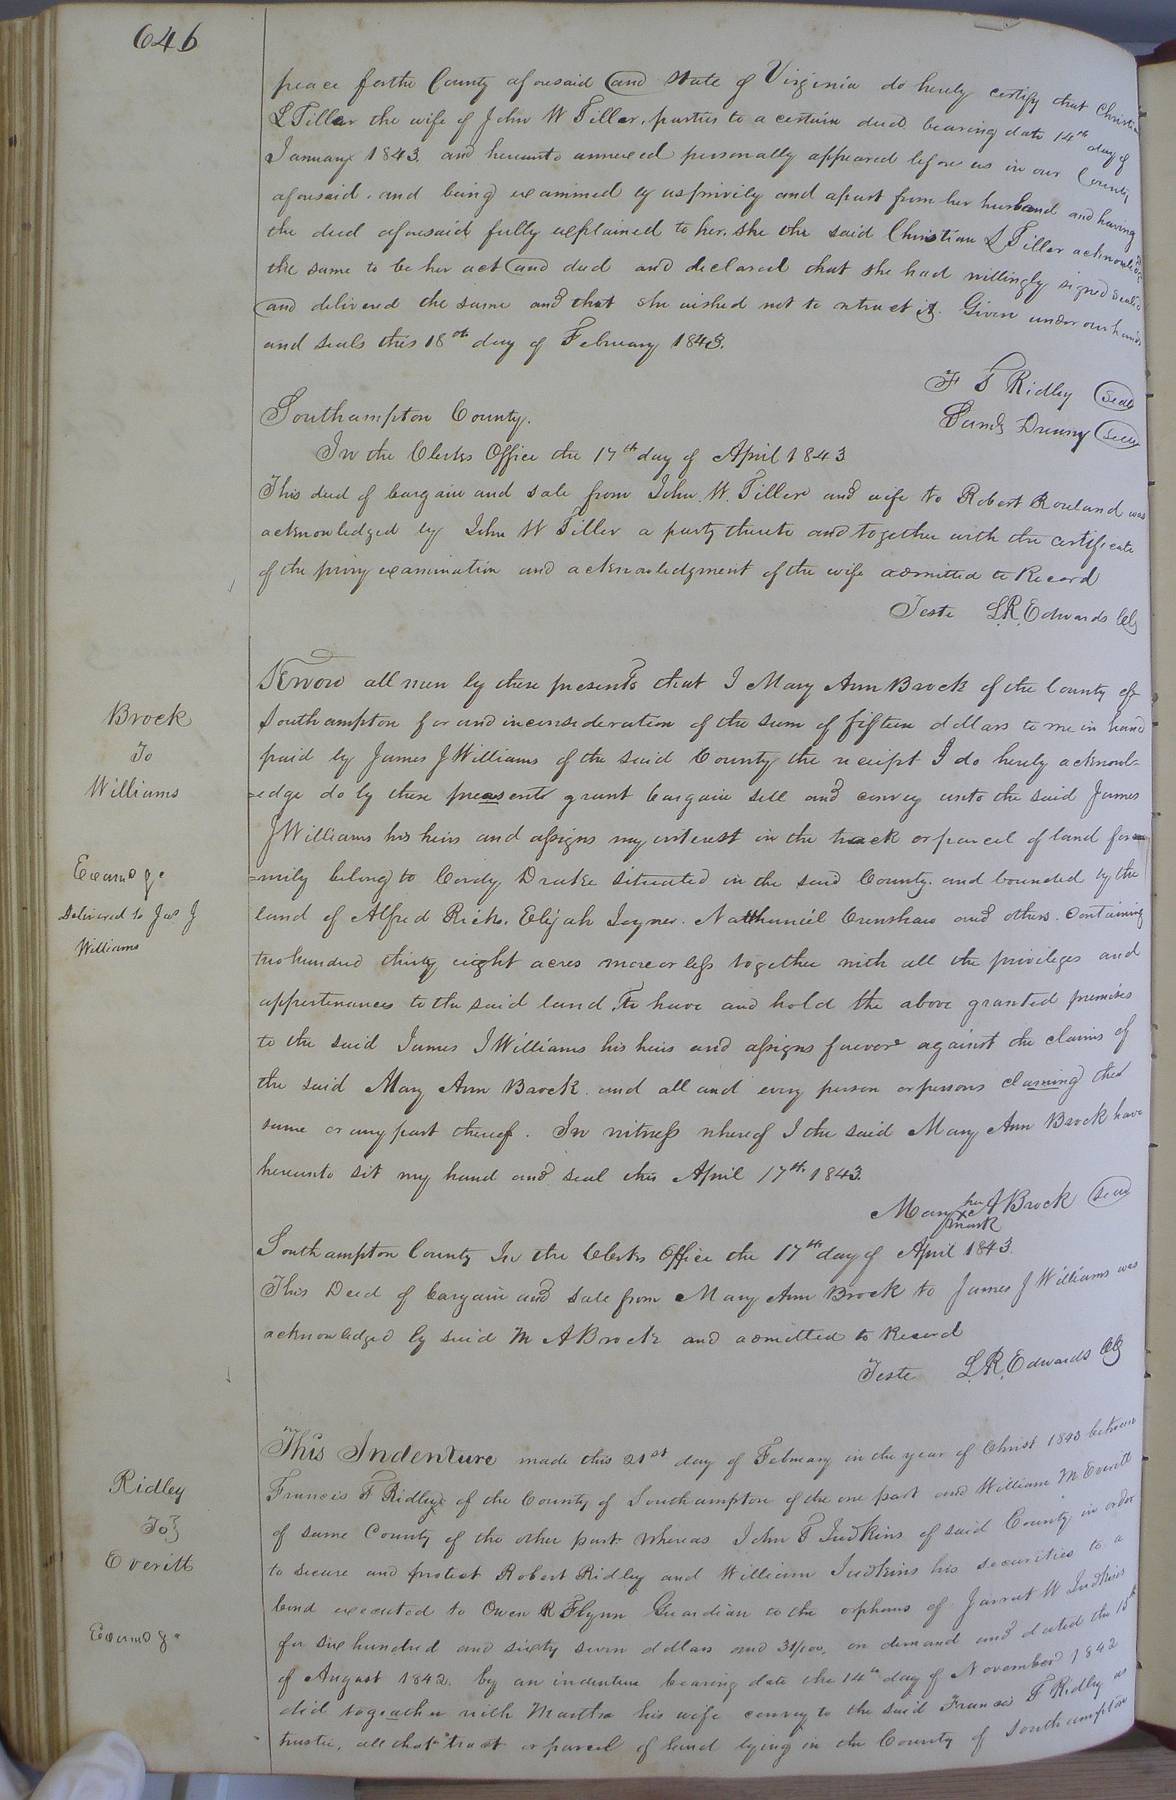 646
peace for the County aforesaid and State of Virginia do hereby certify that Christian
L Tiller the wife of John W Tiller, parties to a certain deed bearing date 14th day of
January 1843. and hereunto annexed personally appeared before us in our County
aforesaid. and being examined by us privily and apart from her husband and having
the deed aforesaid fully explained to her, she the said Christian L Tiller acknowledged
the same to be her act and deed and declared that she had willingly signed sealed
and delivered the same and that she wished not to retract it. Given under our hands
and seals this 18th day of February 1843.
F T Ridley Seal
Saml Drewry Seal
Southampton County.
In the Clerks Office the 17th day of April 1843
This deed of bargain and sale from John W. Tiller and wife to Robert Rowland was
acknowledged by John W Tiller a party thereto and together with the certificate
of the privy examination and acknowledgment of the wife admitted to Record
Teste L.R. Edwards Clk
Brock
To
Williams
Examd &.
Delivered to Jas J
Williams
Know all men by these presents that I Mary Ann Brock of the County of
Southampton for and in consideration of the sum of fifteen dollars to me in hand
paid by James J Williams of the said County the receipt I do hereby acknowl-
=edge do by these preasents grant bargain sell and convey unto the said James
J Williams his heirs and assigns my interest in the track or parcel of land for=
=mily belong to Cordy Drake situated in the said County. and bounded by the
land of Alfred Ricks. Elijah Joyner. Nathaniel Crenshaw and others. Containing
two hundred thirty eight acres more or less together with all the privileges and
appertenances to the said land, To have and hold the above granted premises
to the said James J Williams his heirs and assigns forever against the claims of
the said Mary Ann Brock. and all and every person or persons claming the
same or any part thereof. In witness whereof I the said Mary Ann Brock have
hereunto sit my hand and seal this April 17th 1843.
Mary her x mark A Brock Seal
Southampton County In the Clerks Office the 17th day of April 1843.
This Deed of bargain and sale from Mary Ann Brock to James J Williams was
acknowledged by said M A Brock and admitted to Record
Teste L.R. Edwards Clk
Ridley
To
Everitt
Examd &.
This Indenture made this 21st day of February in the year of Christ 1843 between
Francis T Ridley of the County of Southampton of the one part and William M Everitt
of same County of the other part. Whereas John T Judkins of said County in order
to secure and protect Robert Ridley and William Judkins his securities to a
bond executed to Owen R Flynn Guardian to the orphans of Jarrat W Judkins
for six hundred and sixty seven dollars and 31/100, on demand and dated the 15th
of August 1842. by an indenture bearing date the 14th day of November 1842
did togeather with Martha his wife convey to the said Francis T Ridley as
trustee, all that tract or parcel of land lying in the County of Southampton